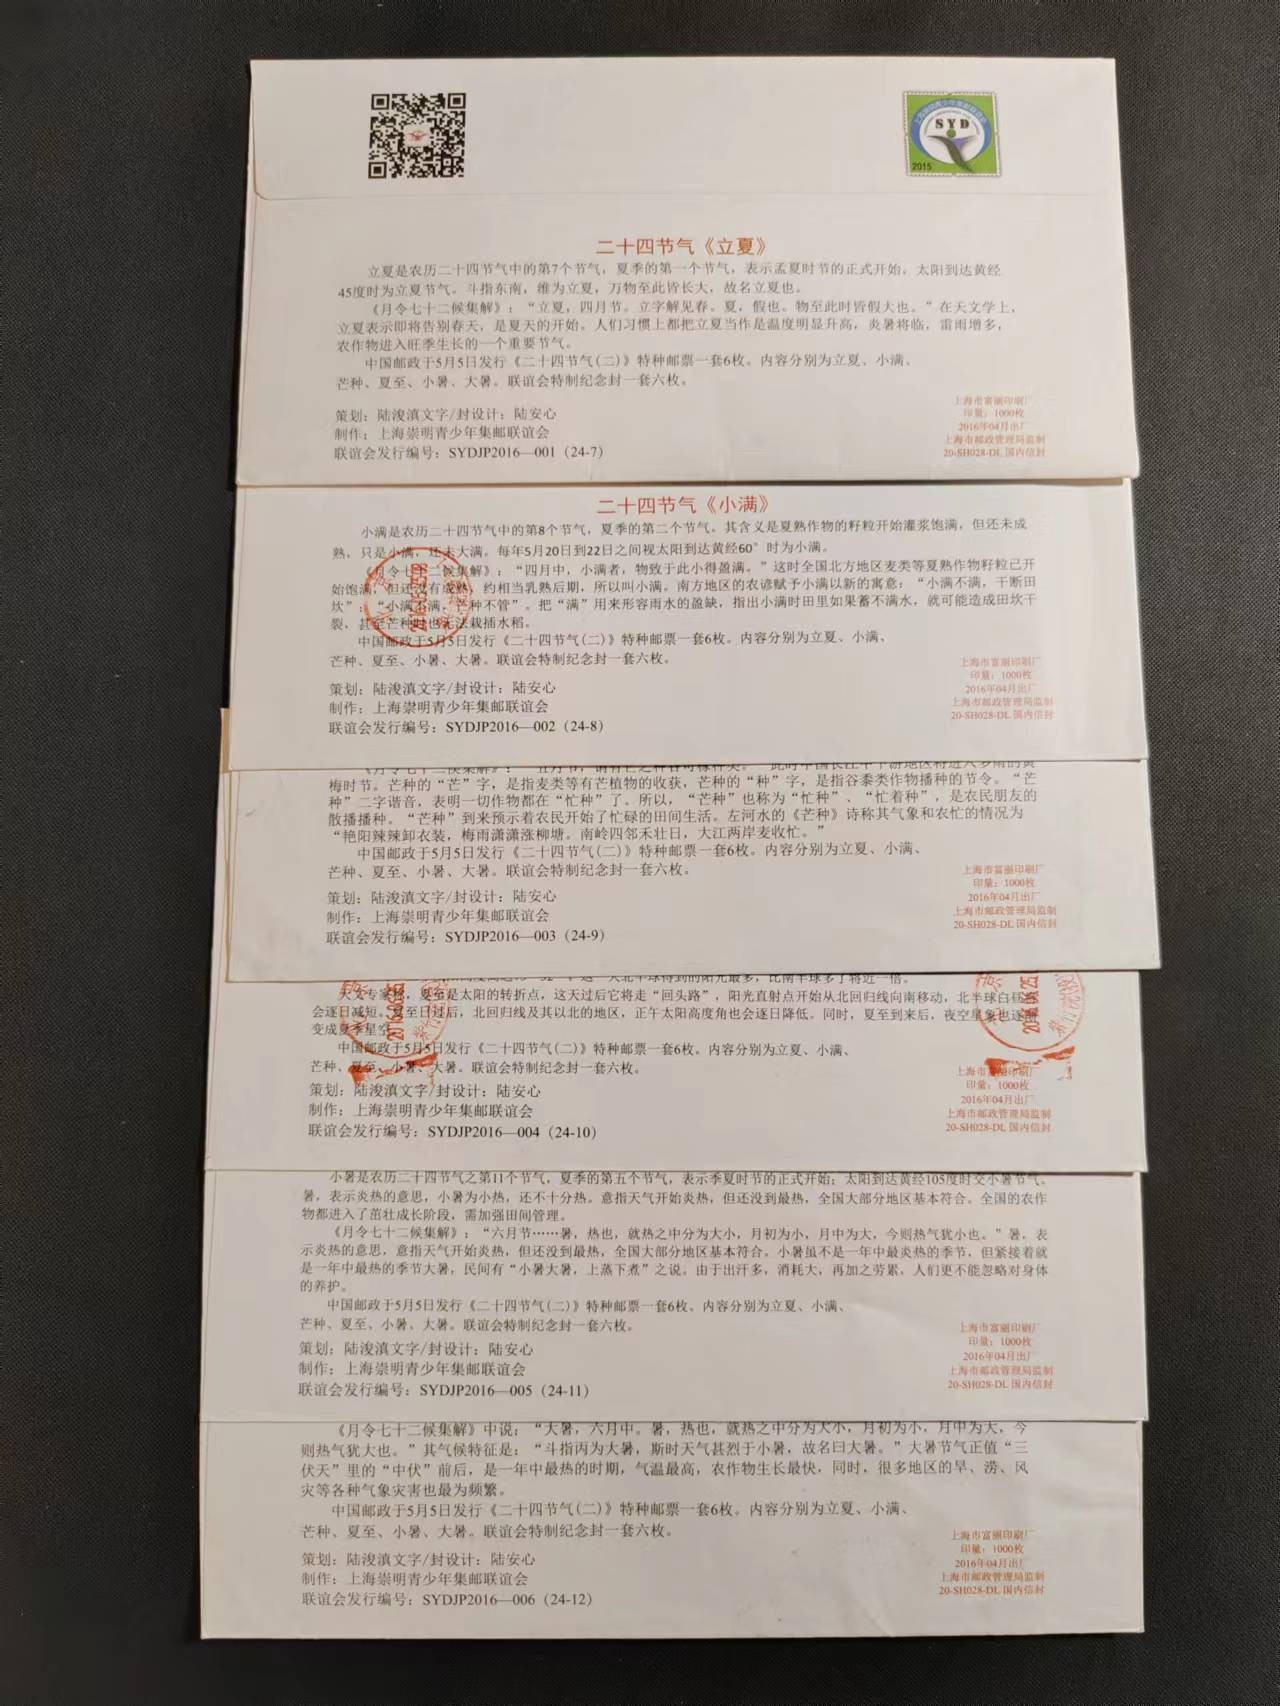 SYD
2015
二十四节气《立夏》
立夏是农历二十四节气中的第7个节气，夏季的第一个节气，表示孟夏时节的正式开始，太阳到达黄经
45度时为立夏节气。斗指东南，维为立夏，万物至此皆长大，故名立夏也。
《月令七十二候集解》：“立夏，四月节。立字解见春。夏，假也。物至此时皆假大也。”在天文学上，
立夏表示即将告别春天，是夏天的开始。人们习惯上都把立夏当作是温度明显升高，炎暑将临，雷雨增多，
农作物进入旺季生长的一个重要节气。
中国邮政于5月5日发行《二十四节气(二)》特种邮票一套6枚。内容分别为立夏、小满、
芒种、夏至、小暑、大暑。联谊会特制纪念封一套六枚。
策划：陆浚滇文字/封设计：陆安心
制作：上海崇明青少年集邮联谊会
联谊会发行编号：SYDJP2016—001（24-7）
上海市富丽印刷厂
印量：1000枚
2016年04月出厂
上海市邮政管理局监制
20-SH028-DL 国内信封
二十四节气《小满》
小满是农历二十四节气中的第8个节气，夏季的第二个节气。其含义是夏熟作物的籽粒开始灌浆饱满，但还未成
熟，只是小满，还未大满。每年5月20日到22日之间视太阳到达黄经60°时为小满。
《月令七十二候集解》：“四月中，小满者，物致于此小得盈满。”这时全国北方地区麦类等夏熟作物籽粒已开
始饱满，但还没有成熟，约相当乳熟后期，所以叫小满。南方地区的农谚赋予小满以新的寓意：“小满不满，干断田
坎”；“小满不满，芒种不管”。把“满”用来形容雨水的盈缺，指出小满时田里如果蓄不满水，就可能造成田坎干
裂，甚至芒种时也无法栽插水稻。
中国邮政于5月5日发行《二十四节气(二)》特种邮票一套6枚。内容分别为立夏、小满、
芒种、夏至、小暑、大暑。联谊会特制纪念封一套六枚。
策划：陆浚滇文字/封设计：陆安心
制作：上海崇明青少年集邮联谊会
联谊会发行编号：SYDJP2016—002（24-8）
上海市富丽印刷厂
印量：1000枚
2016年04月出厂
上海市邮政管理局监制
20-SH028-DL 国内信封
《月令七十二候集解》：“五月节，谓有芒之种谷可稼种矣。”此时中国长江中下游地区将进入多雨的黄
梅时节。芒种的“芒”字，是指麦类等有芒植物的收获，芒种的“种”字，是指谷黍类作物播种的节令。“芒
种”二字谐音，表明一切作物都在“忙种”了。所以，“芒种”也称为“忙种”、“忙着种”，是农民朋友的
散播播种。“芒种”到来预示着农民开始了忙碌的田间生活。左河水的《芒种》诗称其气象和农忙的情况为
“艳阳辣辣卸衣装，梅雨潇潇涨柳塘。南岭四邻禾壮日，大江两岸麦收忙。”
中国邮政于5月5日发行《二十四节气(二)》特种邮票一套6枚。内容分别为立夏、小满、
芒种、夏至、小暑、大暑。联谊会特制纪念封一套六枚。
策划：陆浚滇文字/封设计：陆安心
制作：上海崇明青少年集邮联谊会
联谊会发行编号：SYDJP2016—003（24-9）
上海市富丽印刷厂
印量：1000枚
2016年04月出厂
上海市邮政管理局监制
20-SH028-DL 国内信封
这一天北半球得到的阳光最多，比南半球多了将近一倍。
天文专家称，夏至是太阳的转折点，这天过后它将走“回头路”，阳光直射点开始从北回归线向南移动，北半球白昼
会逐日减短。夏至日过后，北回归线及其以北的地区，正午太阳高度角也会逐日降低。同时，夏至到来后，夜空星象也逐渐
变成夏季星空
中国邮政于5月5日发行《二十四节气(二)》特种邮票一套6枚。内容分别为立夏、小满、
芒种、夏至、小暑、大暑。联谊会特制纪念封一套六枚。
策划：陆浚滇文字/封设计：陆安心
制作：上海崇明青少年集邮联谊会
联谊会发行编号：SYDJP2016—004（24-10）
上海市富丽印刷厂
印量：1000枚
2016年04月出厂
上海市邮政管理局监制
20-SH028-DL 国内信封
小暑是农历二十四节气之第11个节气，夏季的第五个节气，表示季夏时节的正式开始；太阳到达黄经105度时交小暑节气。
暑，表示炎热的意思，小暑为小热，还不十分热。意指天气开始炎热，但还没到最热，全国大部分地区基本符合。全国的农作
物都进入了茁壮成长阶段，需加强田间管理。
《月令七十二候集解》：“六月节……暑，热也，就热之中分为大小，月初为小，月中为大，今则热气犹小也。”暑，表
示炎热的意思，意指天气开始炎热，但还没到最热，全国大部分地区基本符合。小暑虽不是一年中最炎热的季节，但紧接着就
是一年中最热的季节大暑，民间有“小暑大暑，上蒸下煮”之说。由于出汗多，消耗大，再加之劳累，人们更不能忽略对身体
的养护。
中国邮政于5月5日发行《二十四节气(二)》特种邮票一套6枚。内容分别为立夏、小满、
芒种、夏至、小暑、大暑。联谊会特制纪念封一套六枚。
策划：陆浚滇文字/封设计：陆安心
制作：上海崇明青少年集邮联谊会
联谊会发行编号：SYDJP2016—005（24-11）
上海市富丽印刷厂
印量：1000枚
2016年04月出厂
上海市邮政管理局监制
20-SH028-DL 国内信封
《月令七十二候集解》中说：“大暑，六月中。暑，热也，就热之中分为大小，月初为小，月中为大，今
则热气犹大也。”其气候特征是：“斗指丙为大暑，斯时天气甚烈于小暑，故名曰大暑。”大暑节气正值“三
伏天”里的“中伏”前后，是一年中最热的时期，气温最高，农作物生长最快，同时，很多地区的旱、涝、风
灾等各种气象灾害也最为频繁。
中国邮政于5月5日发行《二十四节气(二)》特种邮票一套6枚。内容分别为立夏、小满、
芒种、夏至、小暑、大暑。联谊会特制纪念封一套六枚。
策划：陆浚滇文字/封设计：陆安心
制作：上海崇明青少年集邮联谊会
联谊会发行编号：SYDJP2016—006（24-12）
上海市富丽印刷厂
印量：1000枚
2016年04月出厂
上海市邮政管理局监制
20-SH028-DL 国内信封